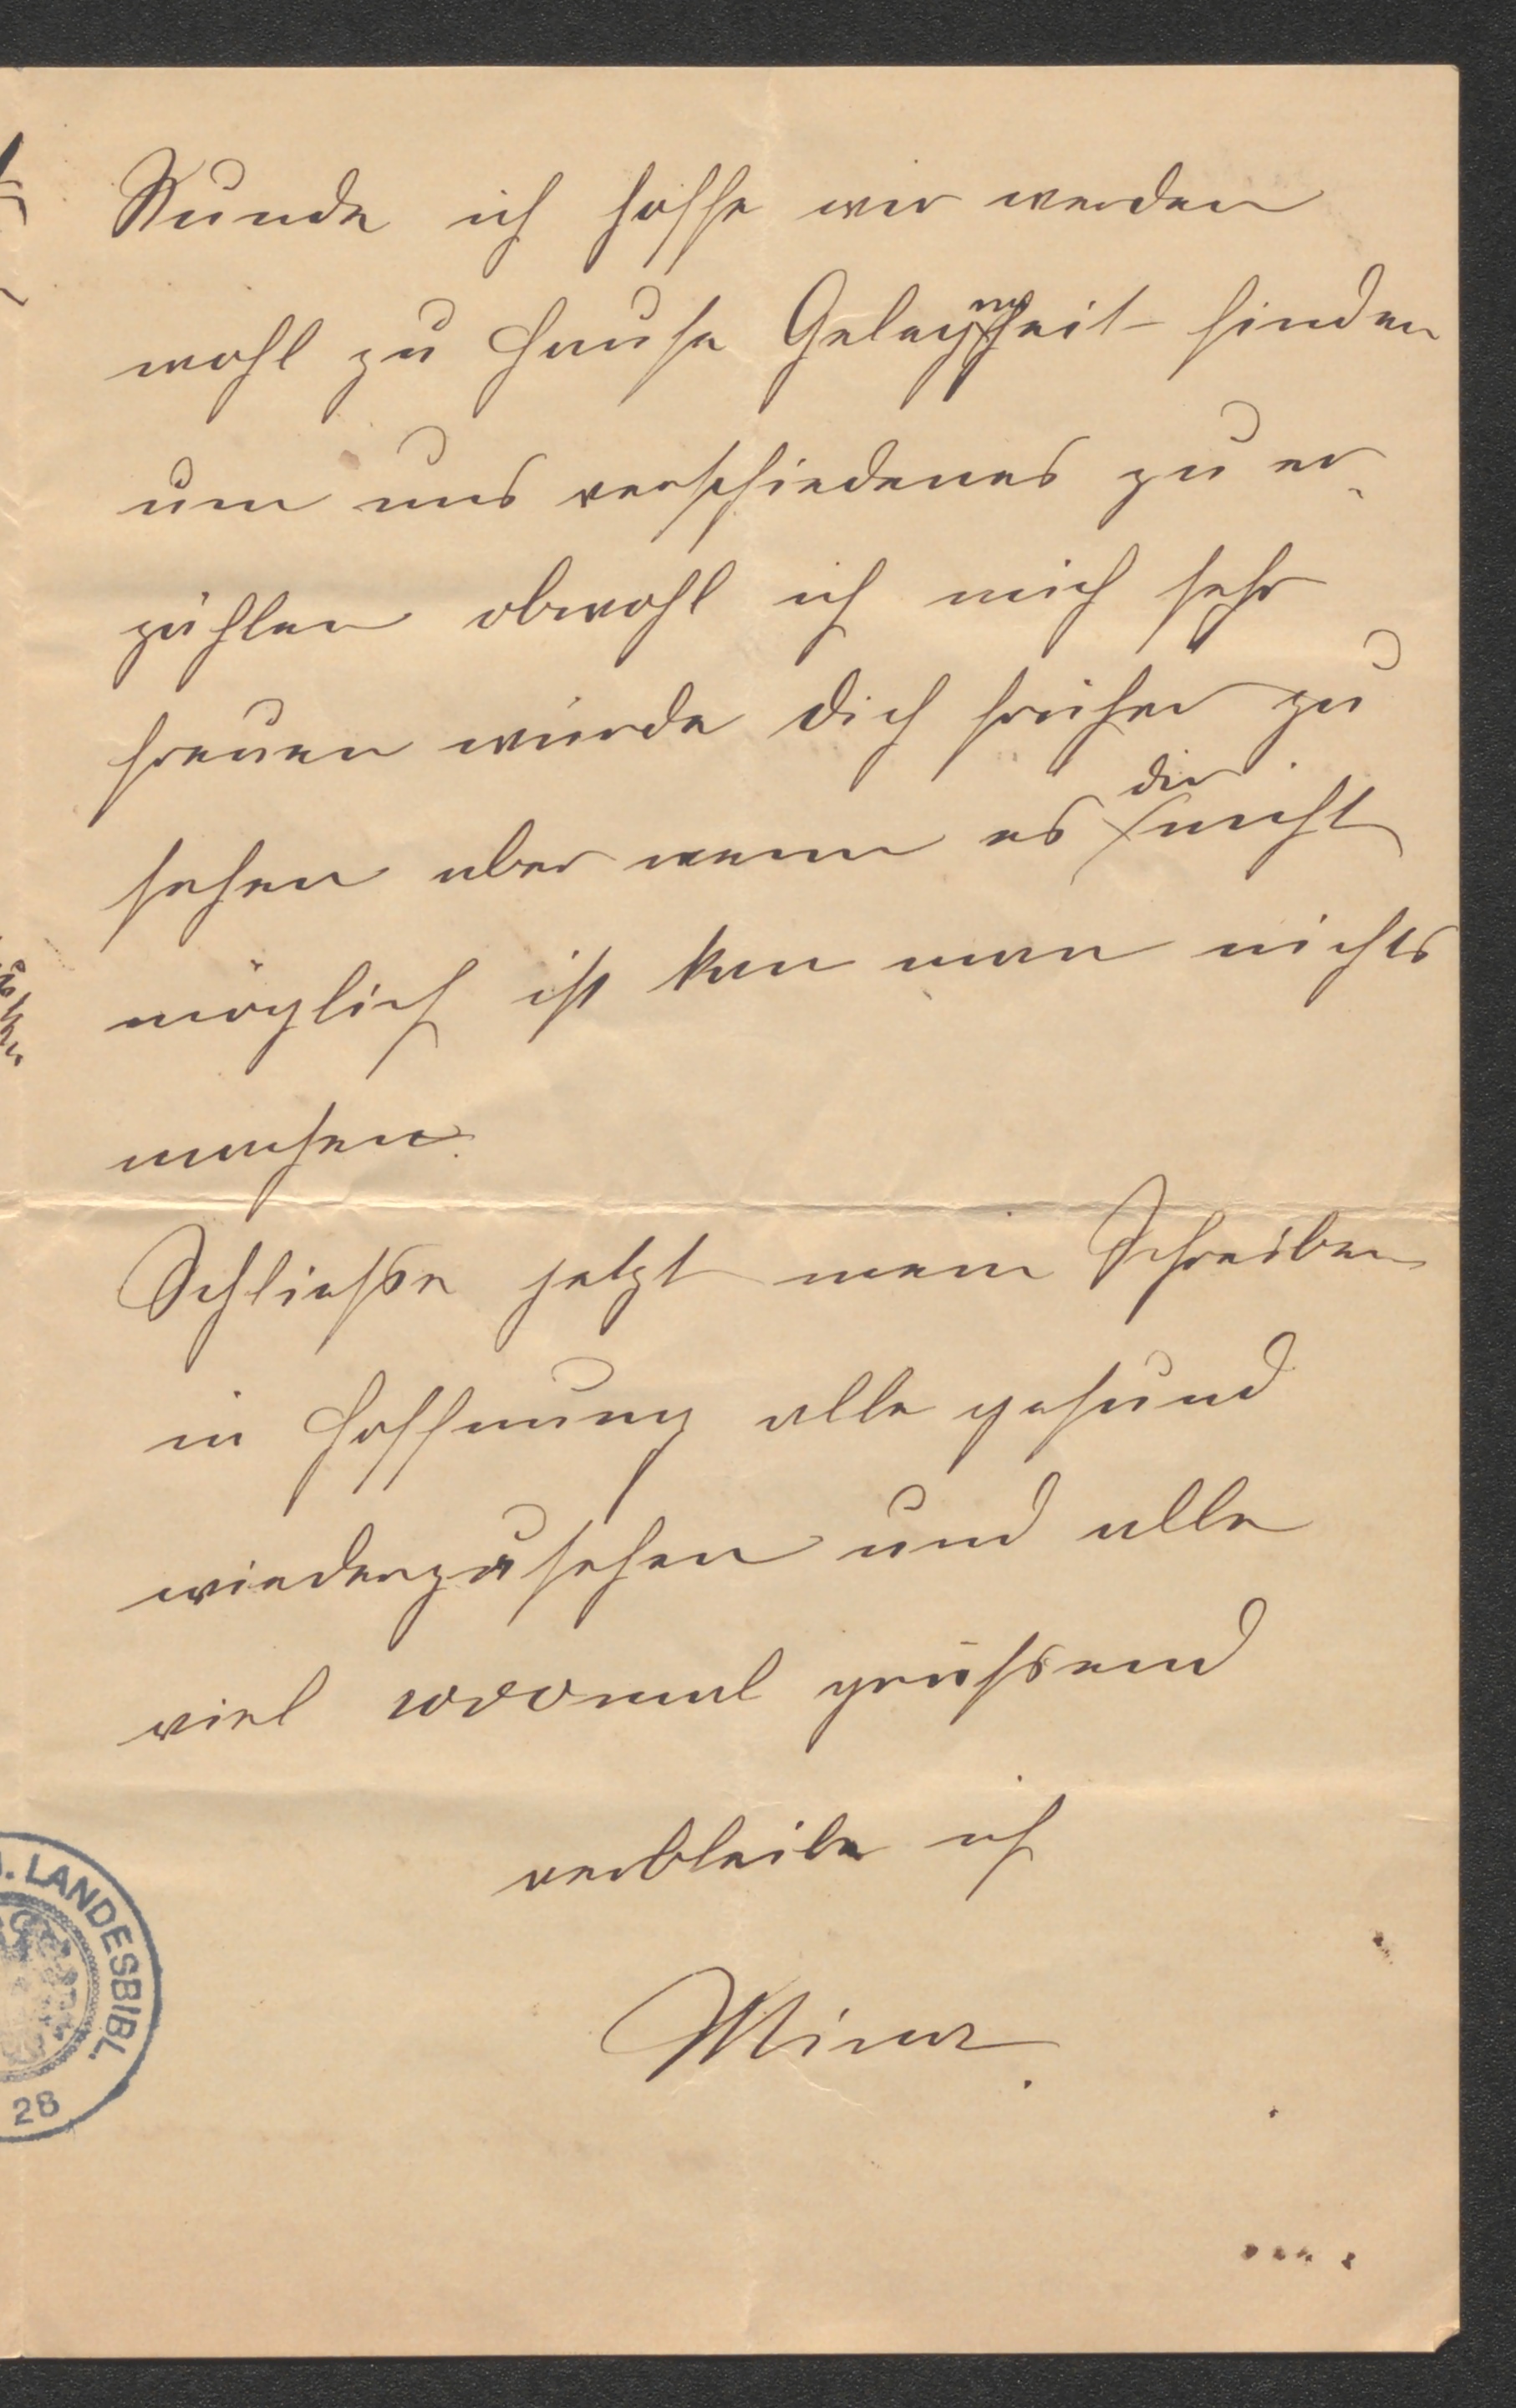 Stunde ich hoffe wir werden
wohl zu Hause Gelegenheit finden
um uns verschiedenes zu er-
zühlen obwohl ich mich sehr
freuen würde dich früher zu
sehen aber wenn es dir nicht
möglich ist kan man nichts
machen.
Schließe jetzt mein Schreiben
in Hoffnung alle gesund
wiederzusehen und alle
viel 1000mal grüßend
verbleibe ich
Minna.
. LANDESBIBL.
28